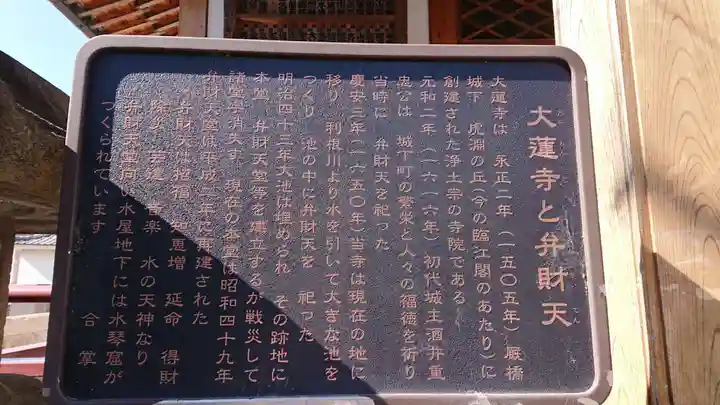 大蓮寺と弁財天
だいれんじ べんざいてん
大蓮寺は 永正二年(一五〇五年)厩橋
城下 虎淵の丘(今の臨江閣のあたり)に
創建された浄土宗の寺院である
元和二年(一六一六年)初代城主酒井重
忠公は 城下町の繁栄と人々の福徳を祈り
当時に 弁財天を祀った
慶安三年(一六五〇年)当寺は現在の地に
移り 利根川より水を引いて大きな池を
つくり 池の中に弁財天を 祀った
明治四十三年大池は埋められ その跡地に
本堂 弁財天堂等を建立するが戦災して
諸堂宇消失す 現在の本堂は昭和四十九年
弁財天堂は平成二年に再建された
弁財天は招福 更増 延命 得財
音楽 水の天神なり
弁財天堂前 水屋地下には水琴窟が
つくられています
合掌